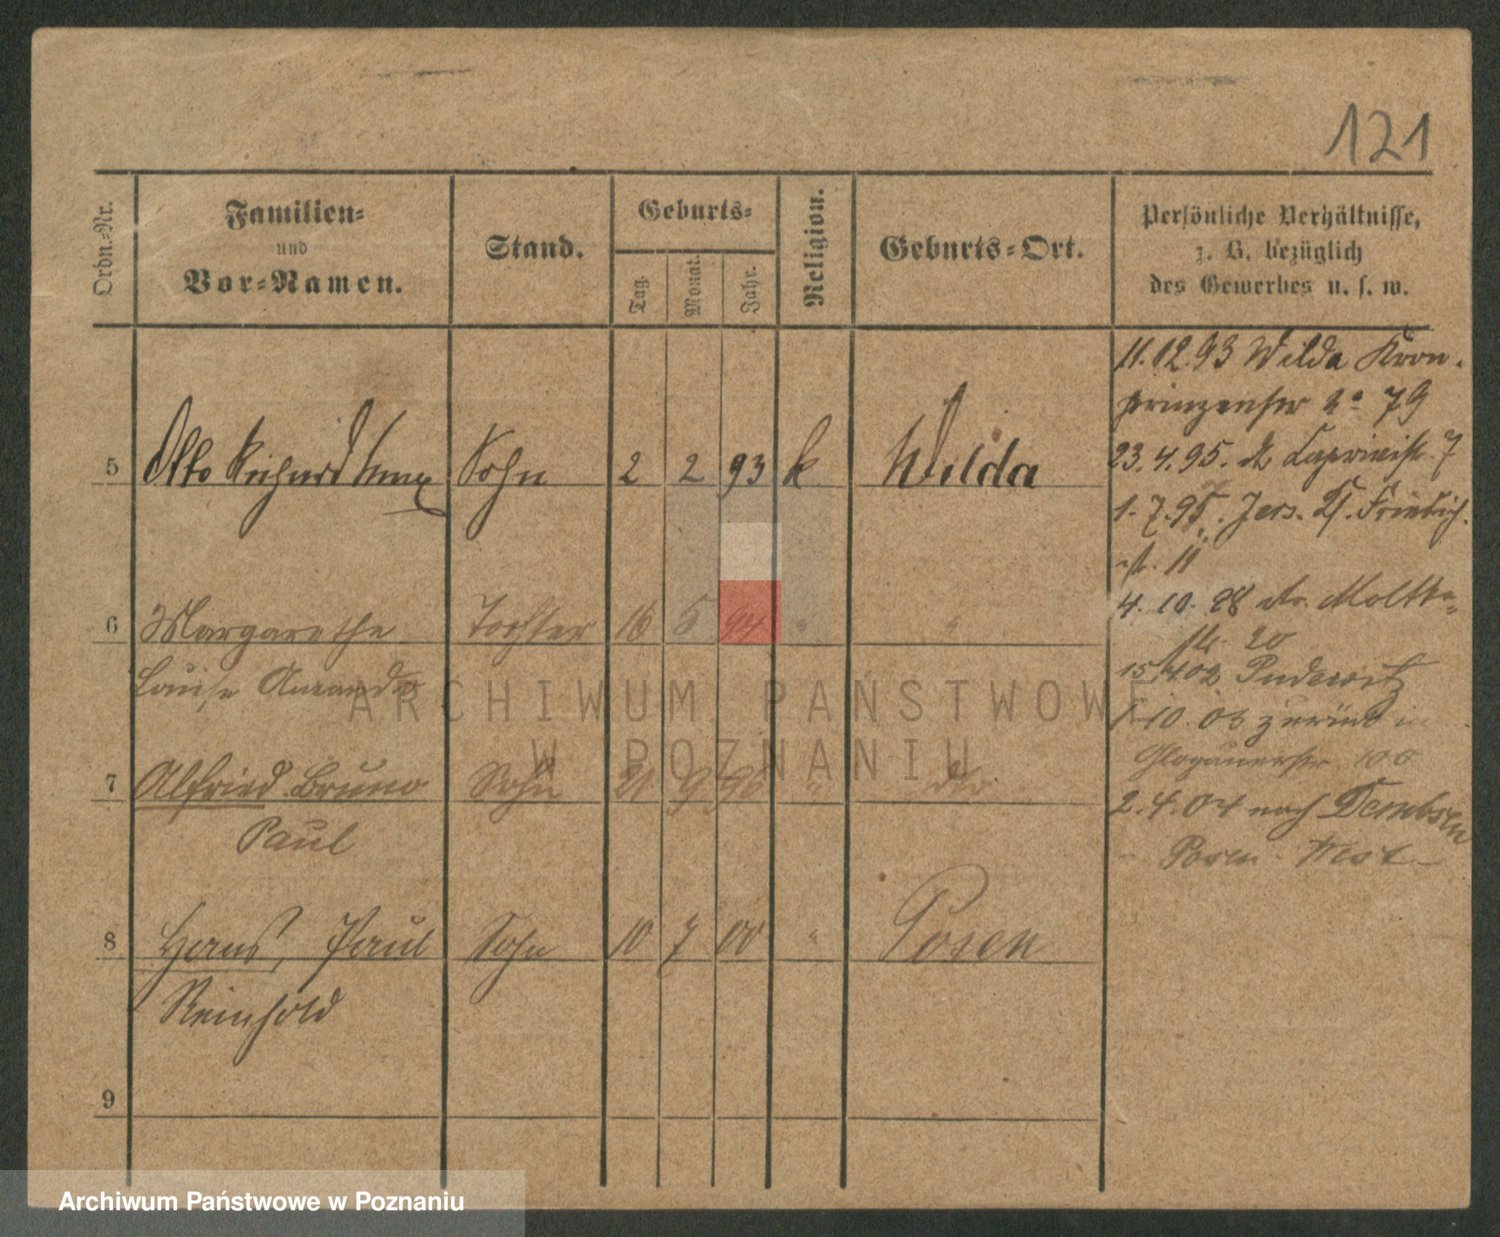 121
Ordn.-Nr.
Familien-
und
Vor-Namen.
Stand.
Geburts-
Tag.
Monat.
Jahr.
Religion.
Geburts-Ort.
Persönliche Verhältnisse,
z. B. bezüglich
des Gewerbes u. s. w.
5 Otto Richard Sohn 2 2 93 k Wilda
6 Margarethe Tochter 16 5 94 "
Louise Amanda
7 Alfried Bruno Sohn 21 9 96 " do
Paul
8 Hans, Paul Sohn 10 7 00 " Posen
Reinhold
9
11.12.93 Wilda Kron-
prinzenstr 79
23.4.95. Caprivistr. 7
1.7.95. Jers. St. Friedrich-
str. 11
4.10. Moltke-
str. 20
15.4.02 Pudewitz
1.10.03 zurück in
Glogauerstr 100
2.4.04 nach Dembsen
Posen - West -
ARCHIWUM PAŃSTWOWE
W POZNANIU
Archiwum Państwowe w Poznaniu